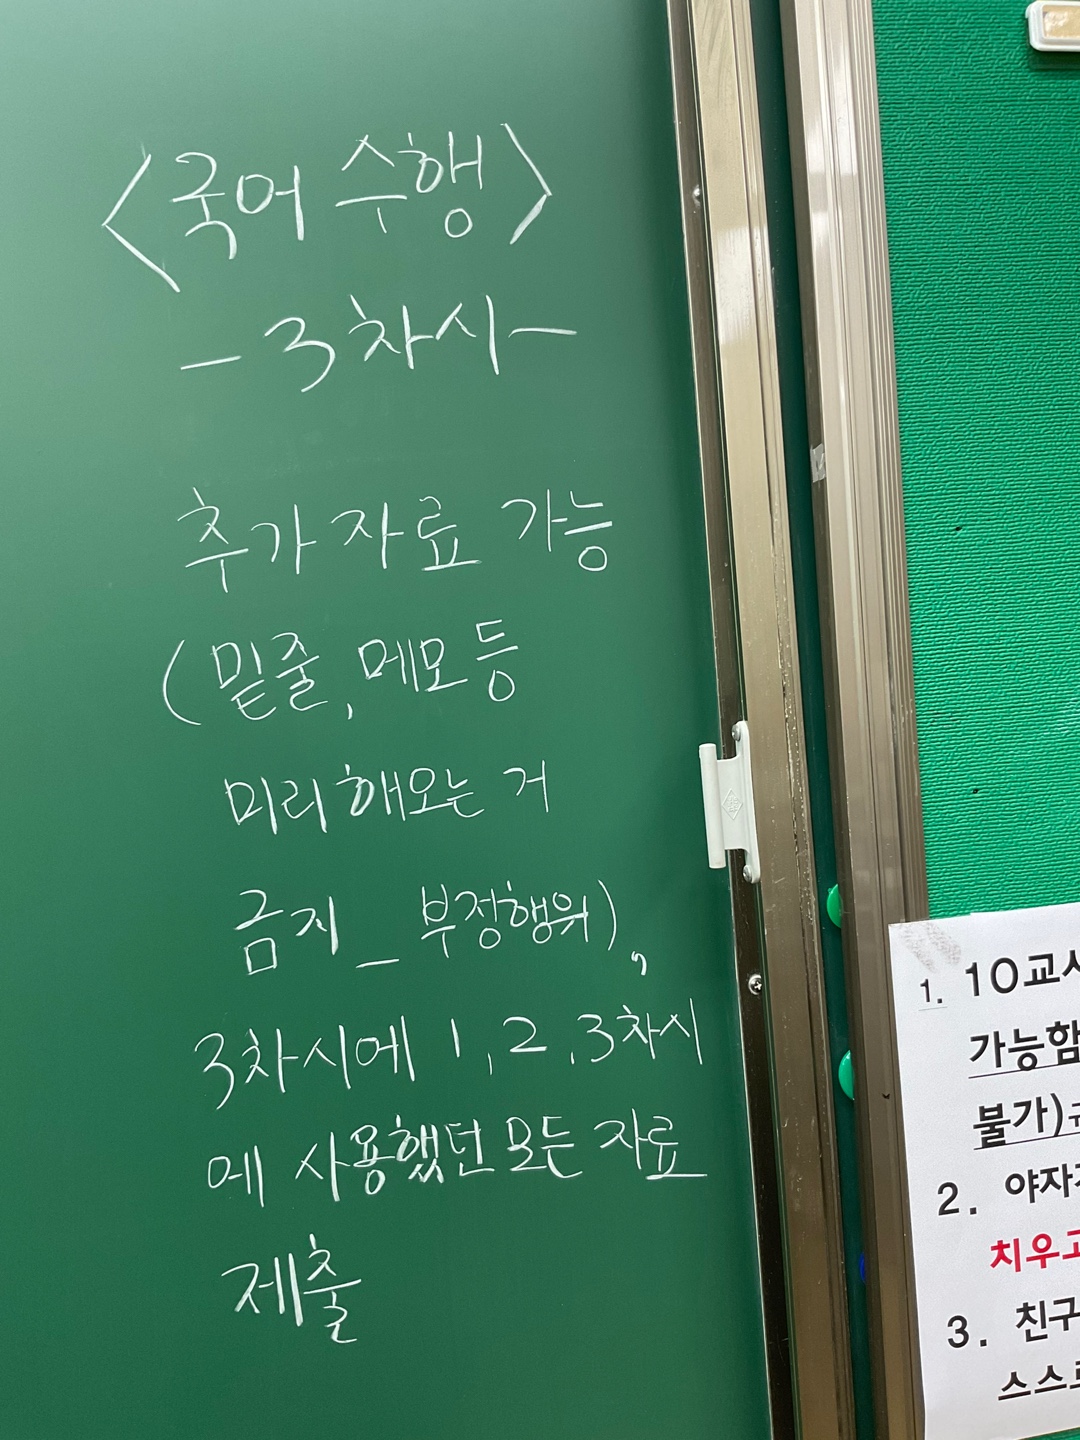 <국어 수행>
-3차시-
추가 자료 가능
(밑줄, 메모 등
미리 해오는 거
금지_부정행위),
3차시에 1, 2, 3차시
에 사용했던 모든 자료
제출
1. 10교시
가능함
불가)
2. 야자
치우고
3. 친구
스스로